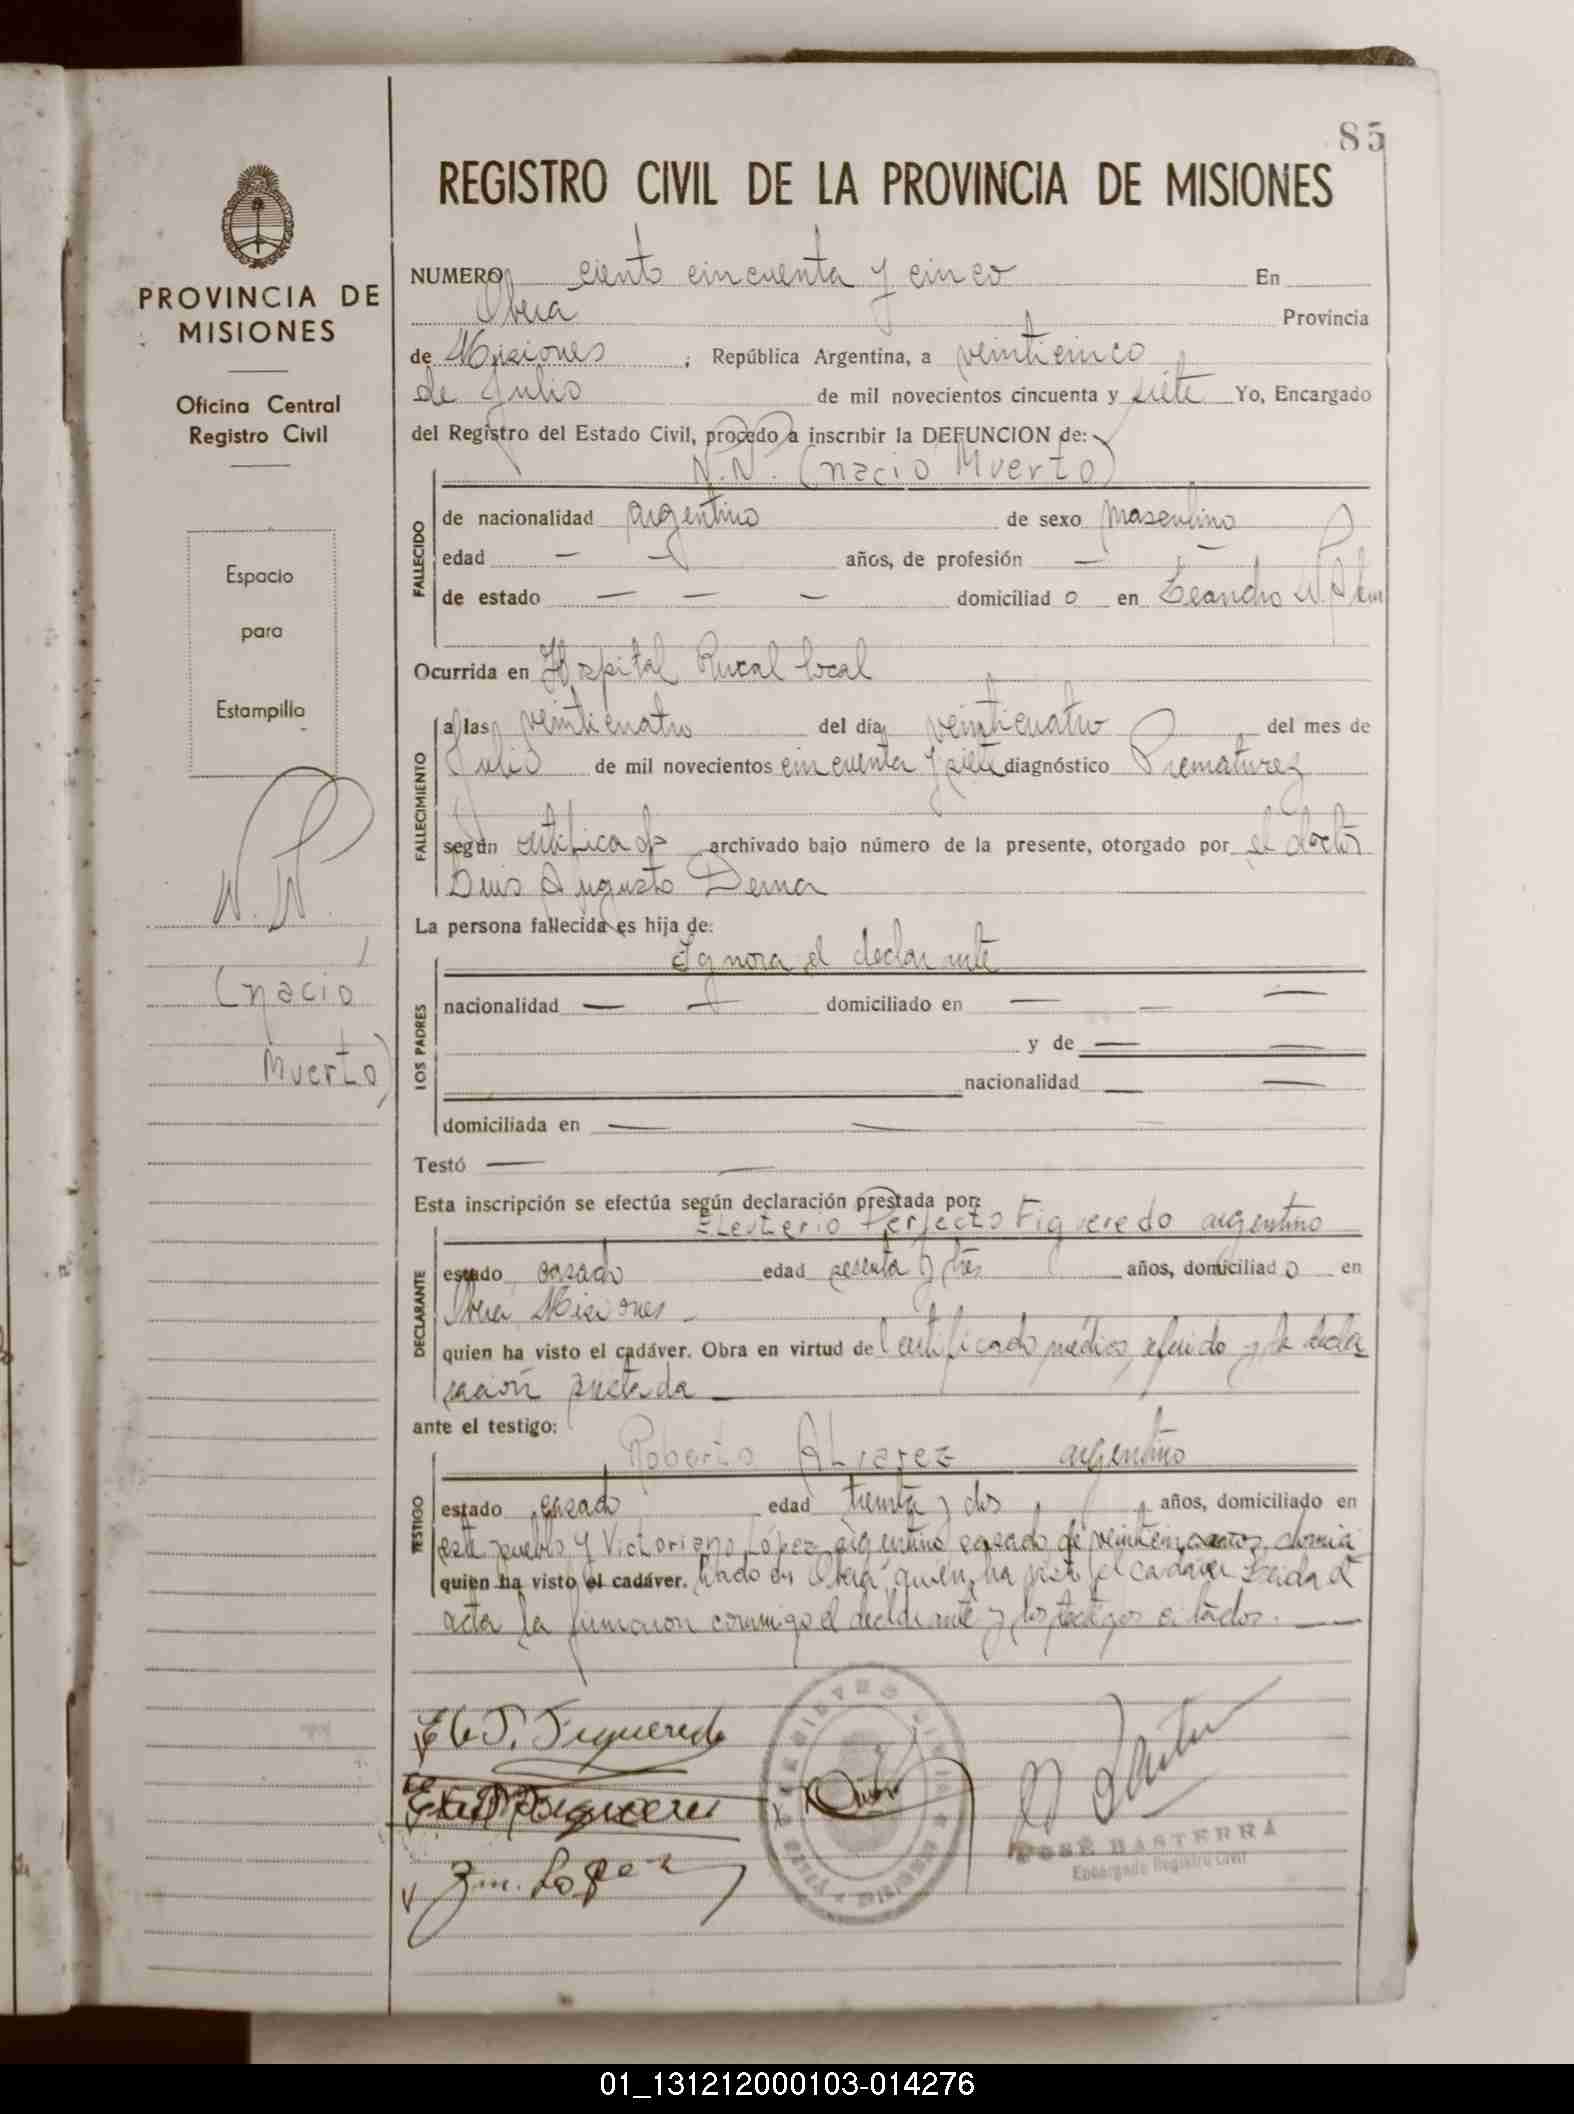 85
REGISTRO CIVIL DE LA PROVINCIA DE MISIONES
PROVINCIA DE
MISIONES
Oficina Central
Registro Civil
Espacio
para
Estampilla
N.N.
(nacio
Muerto)
NUMERO ciento cincuenta y cinco En
Obera Provincia
de Misiones ; República Argentina, a veinticinco
de Julio de mil novecientos cincuenta y siete Yo, Encargado
del Registro del Estado Civil, procedo a inscribir la DEFUNCION de:
N.N. (nacio Muerto)
FALLECIDO
de nacionalidad argentino de sexo masculino
edad — — años, de profesión — —
de estado — — — domiciliad o en Leandro N. Alem
Ocurrida en Hospital Rural local
FALLECIMIENTO
a las veinticuatro del día veinticuatro del mes de
Julio de mil novecientos cincuenta y siete diagnóstico Prematurez
según certificado archivado bajo número de la presente, otorgado por el doctor
Luis Augusto Derna
La persona fallecida es hija de:
Ignora el declarante
LOS PADRES
nacionalidad — — domiciliado en — — —
y de — —
nacionalidad — —
domiciliada en — —
Testó — —
Esta inscripción se efectúa según declaración prestada por:
Eleuterio Perfecto Figueredo argentino
DECLARANTE
estado casado edad sesenta y tres años, domiciliad o en
Obera Misiones —
quien ha visto el cadáver. Obra en virtud del certificado médico referido y la decla
ración prestada —
ante el testigo:
Roberto Alvarez argentino
TESTIGO
estado casado edad treinta y dos años, domiciliado en
este pueblo y Victoriano López argentino casado de domici
quien ha visto el cadáver. liado en Obera quien ha visto el cadáver Leida el
acta la firmaron conmigo el declarante y los testigos citados. —
El P. Figueredo
Lopez
JOSÉ BASTERRA
Encargado Registro Civil
01_131212000103-014276